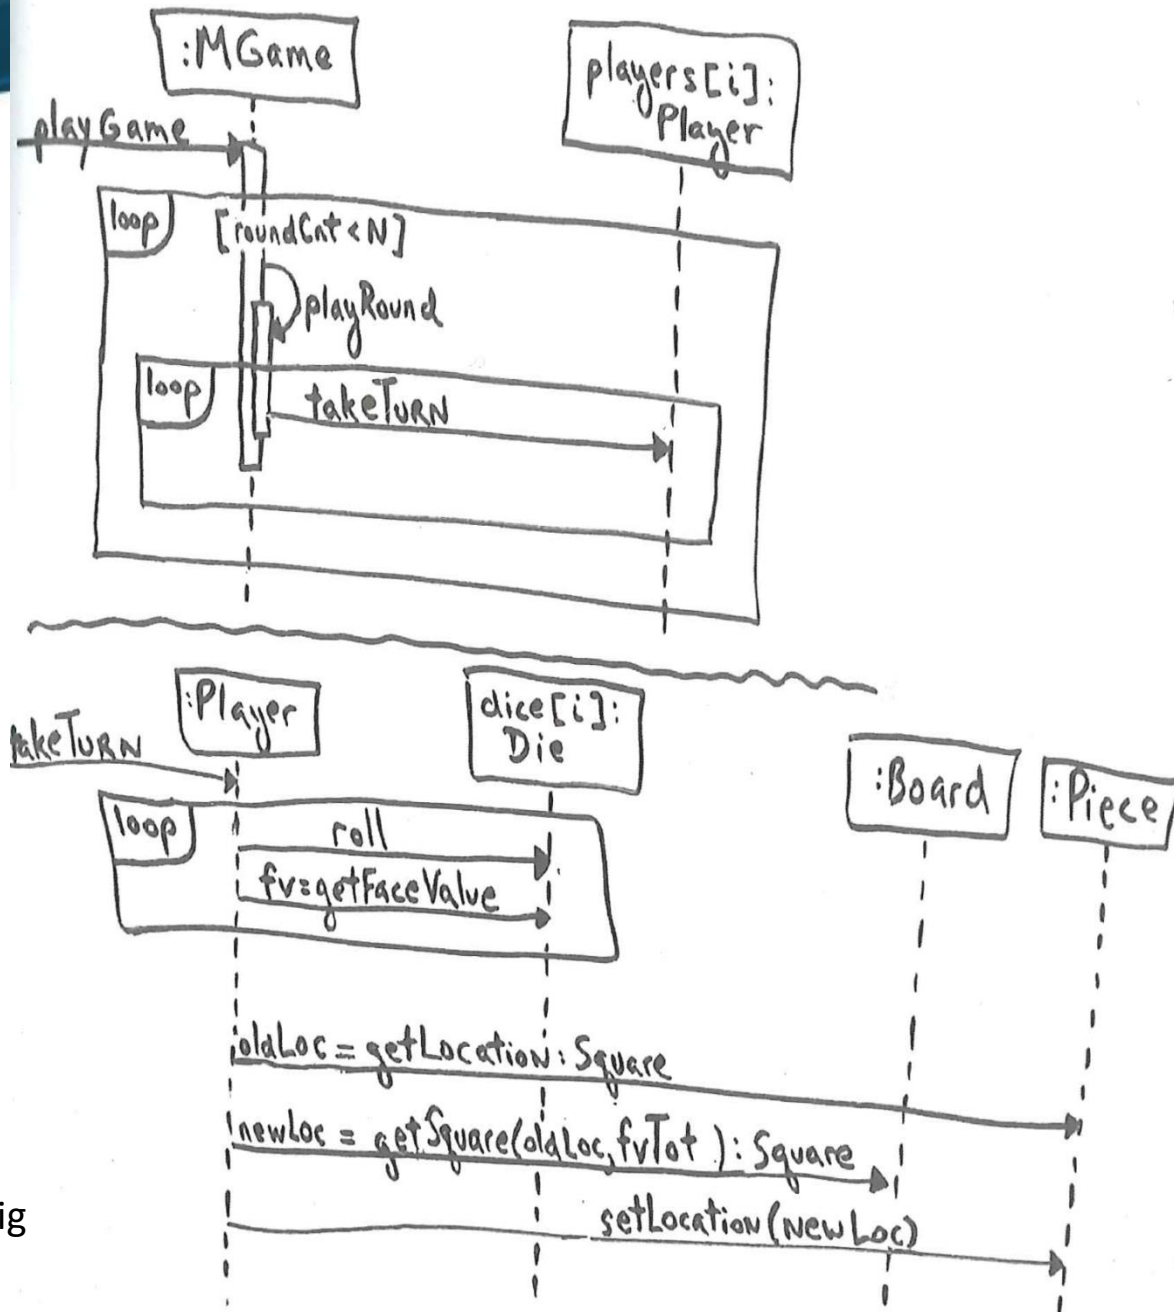 :MGame
players[i]:
Player
playGame
loop
[roundCnt<N]
playRound
loop
takeTURN
:Player
dice[i]:
Die
takeTURN
:Board
:Piece
loop
roll
fv=getFaceValue
oldLoc = getLocation: Square
newLoc = getSquare(oldLoc, fvTot): Square
ig
setLocation(NewLoc)